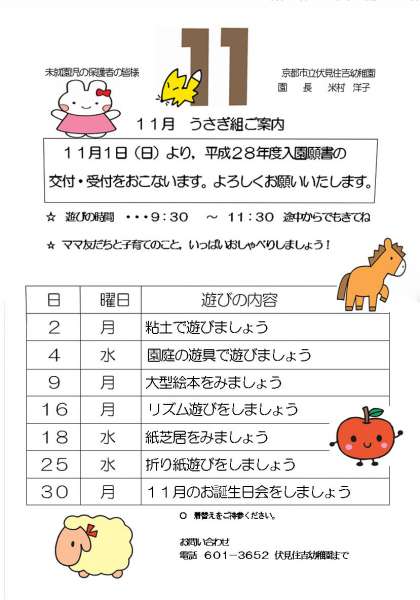 11
未就園児の保護者の皆様
京都市立伏見住吉幼稚園
園　長　米村　洋子
１１月　うさぎ組ご案内
１１月１日（日）より，平成２８年度入園願書の
交付・受付をおこないます。よろしくお願いいたします。
☆　遊びの時間　・・・９：３０　～　１１：３０　途中からでもきてね
☆　ママ友だちと子育てのこと。いっぱいおしゃべりしましょう！
日　曜日　遊びの内容
２　月　粘土で遊びましょう
４　水　園庭の遊具で遊びましょう
９　月　大型絵本をみましょう
１６　月　リズム遊びをしましょう
１８　水　紙芝居をみましょう
２５　水　折り紙遊びをしましょう
３０　月　１１月のお誕生日会をしましょう
○　着替えをご持参ください。
お問い合わせ
電話　６０１－３６５２　伏見住吉幼稚園まで